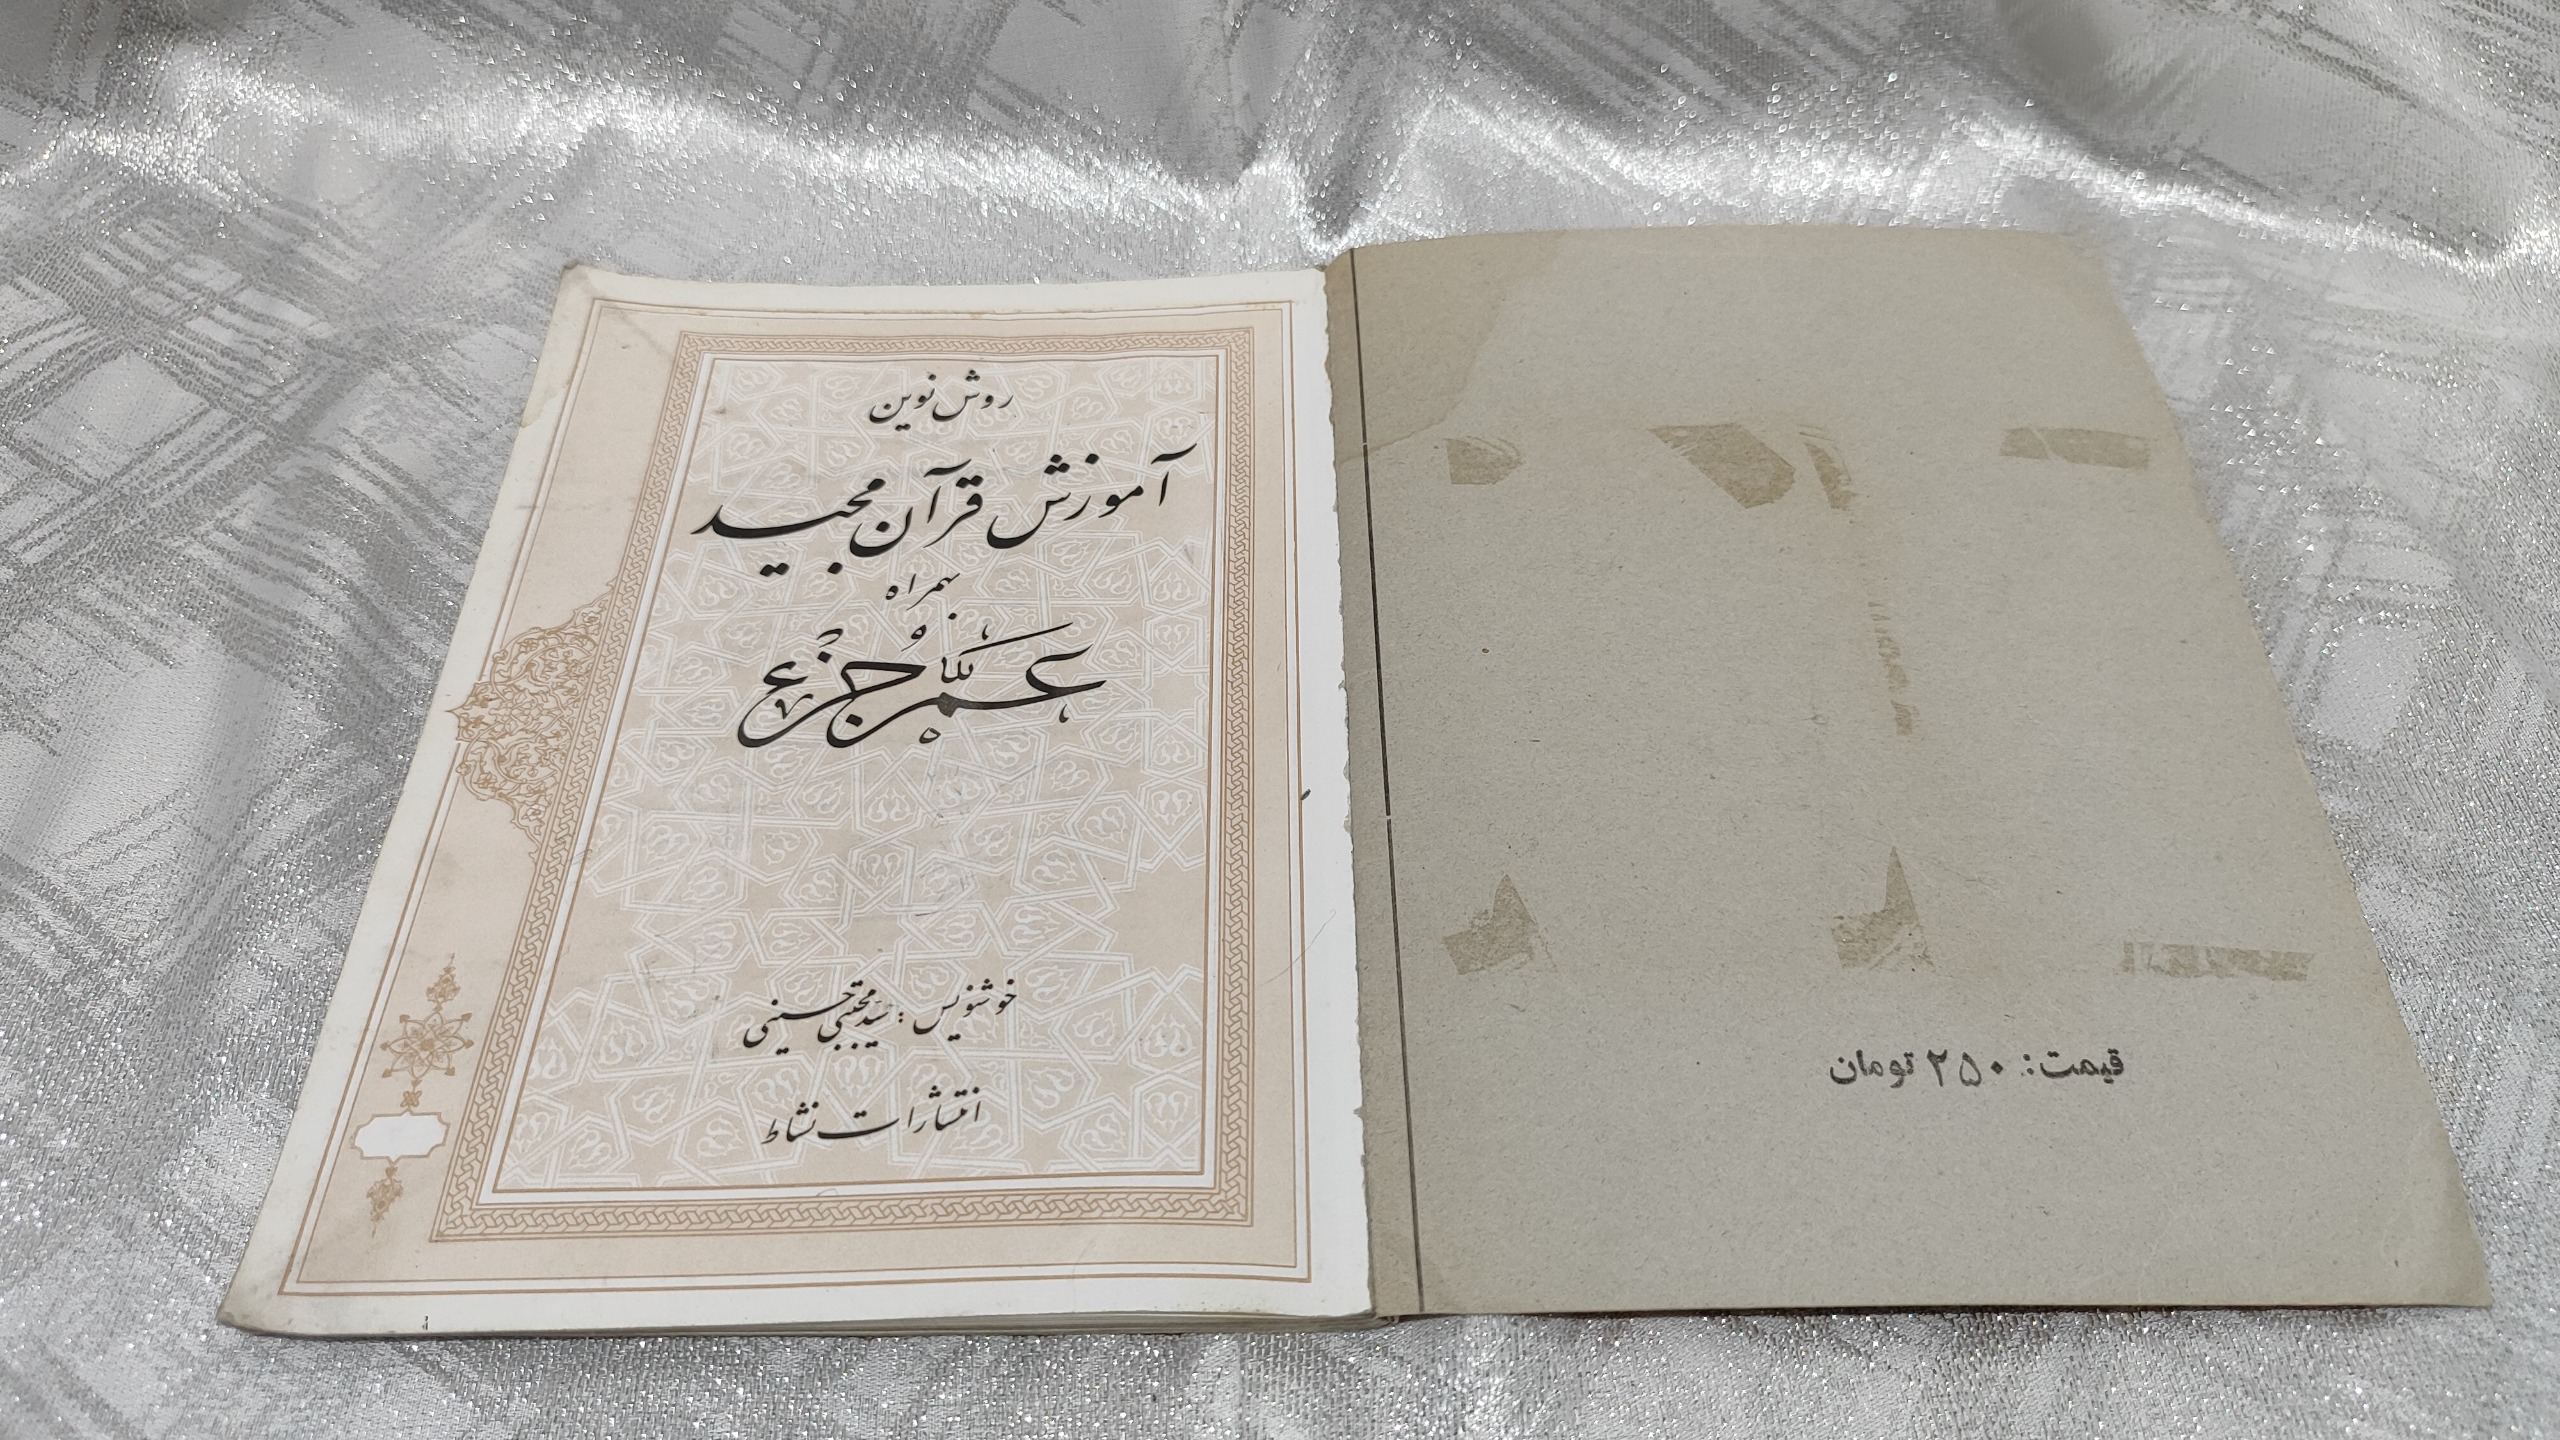 روش نوین
آموزش قرآن مجید
همراه
عمّ جزء
خوشنویس : سید مجتبی حسینی
انتشارات نشاط
قیمت: ۲۵۰ تومان